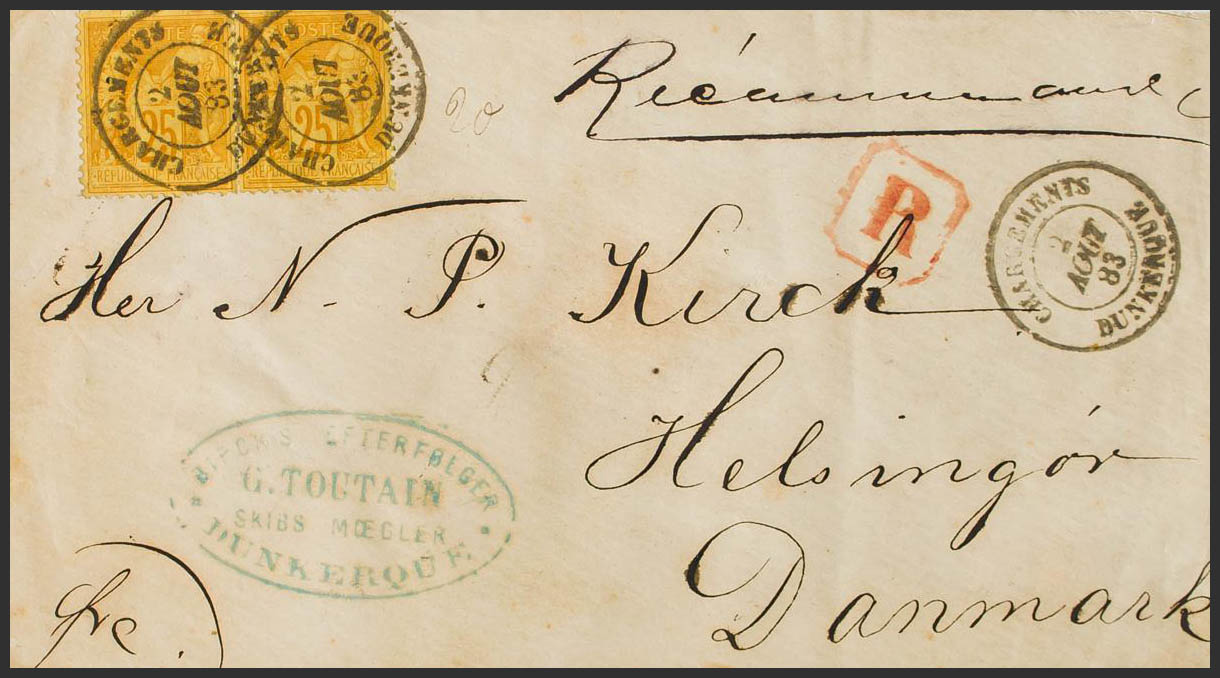 POSTE
25
25
RÉPUBLIQUE FRANÇAISE
RÉPUBLIQUE FRANÇAISE
CHARGEMENTS DUNKERQUE
2
AOUT
83
CHARGEMENTS DUNKERQUE
2
AOUT
83
20
R
CHARGEMENTS DUNKERQUE
2
AOUT
83
Her N. P. Kirck
Helsingör
Danmark
EFTERFØLGER
G. TOUTAIN
SKIBS MŒGLER
DUNKERQUE